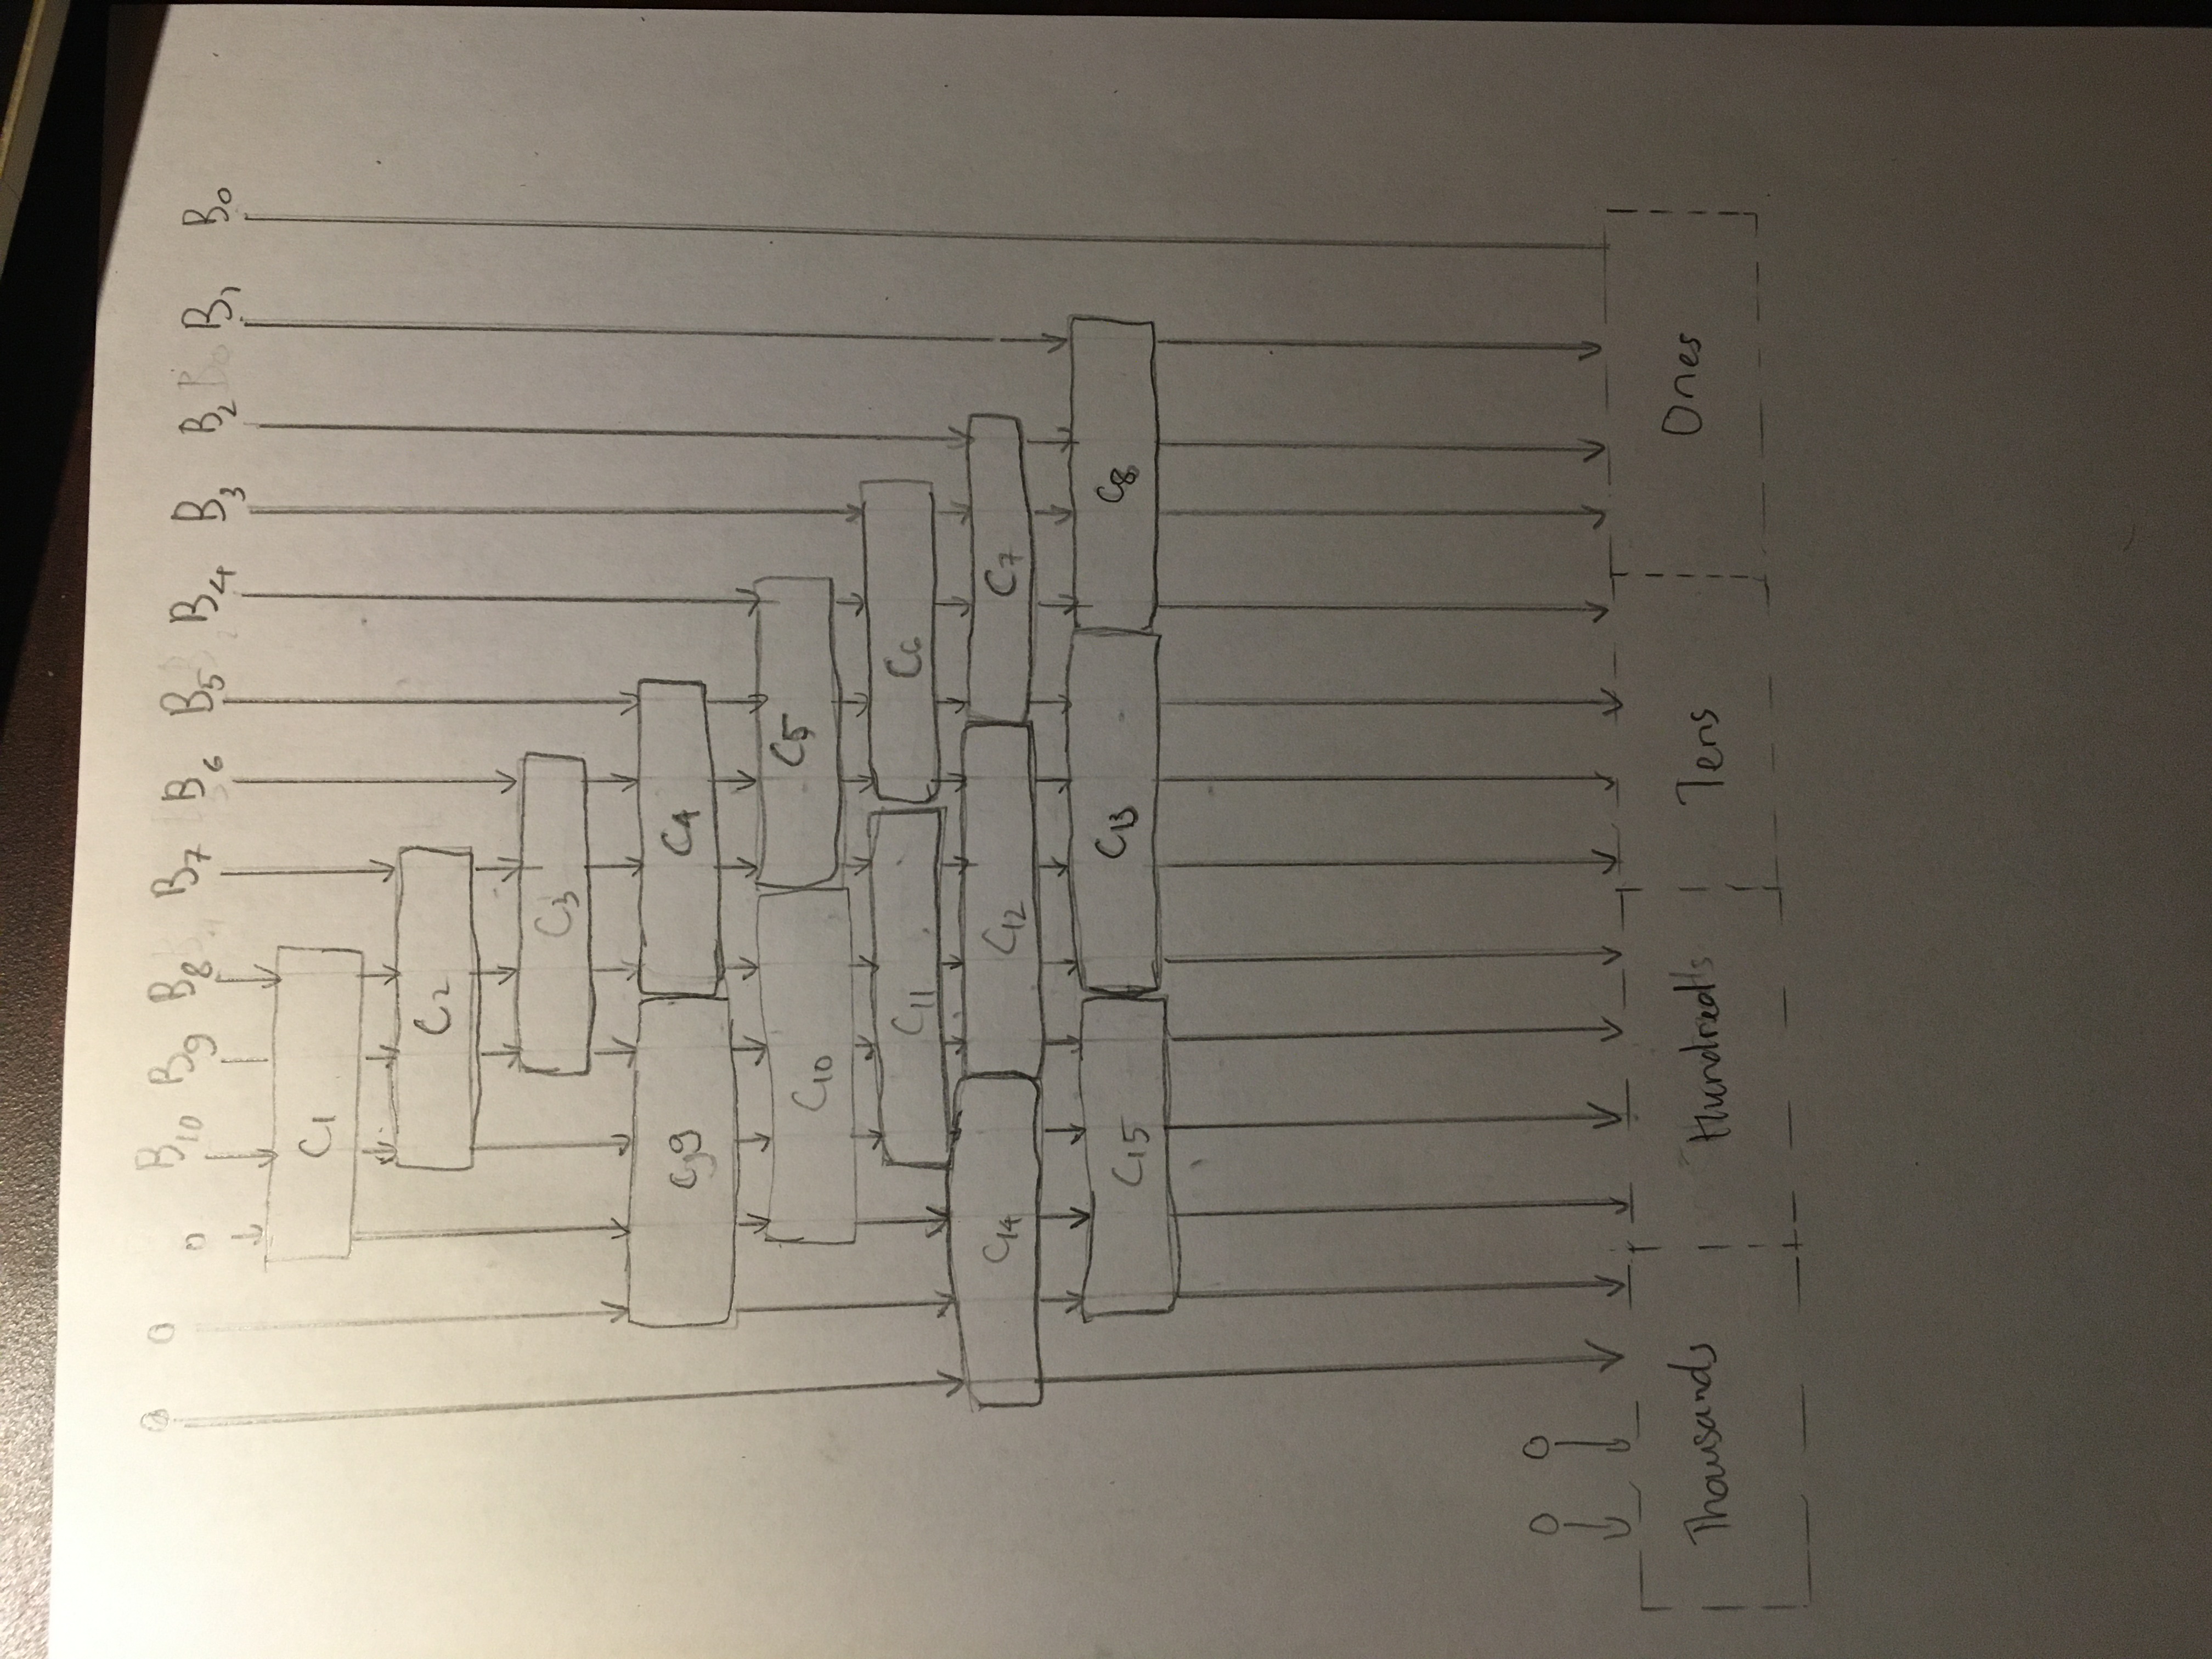 0 0 0 B₁₀ B₉ B₈ B₇ B₆ B₅ B₄ B₃ B₂ B₁ B₀
C₁
C₂
C₃
C9 C₄
C₁₀ C₅
C₁₁ C₆
C₁₄ C₁₂ C₇
C₁₅ C₁₃ C₈
0 0
Thousands Hundred's Tens Ones